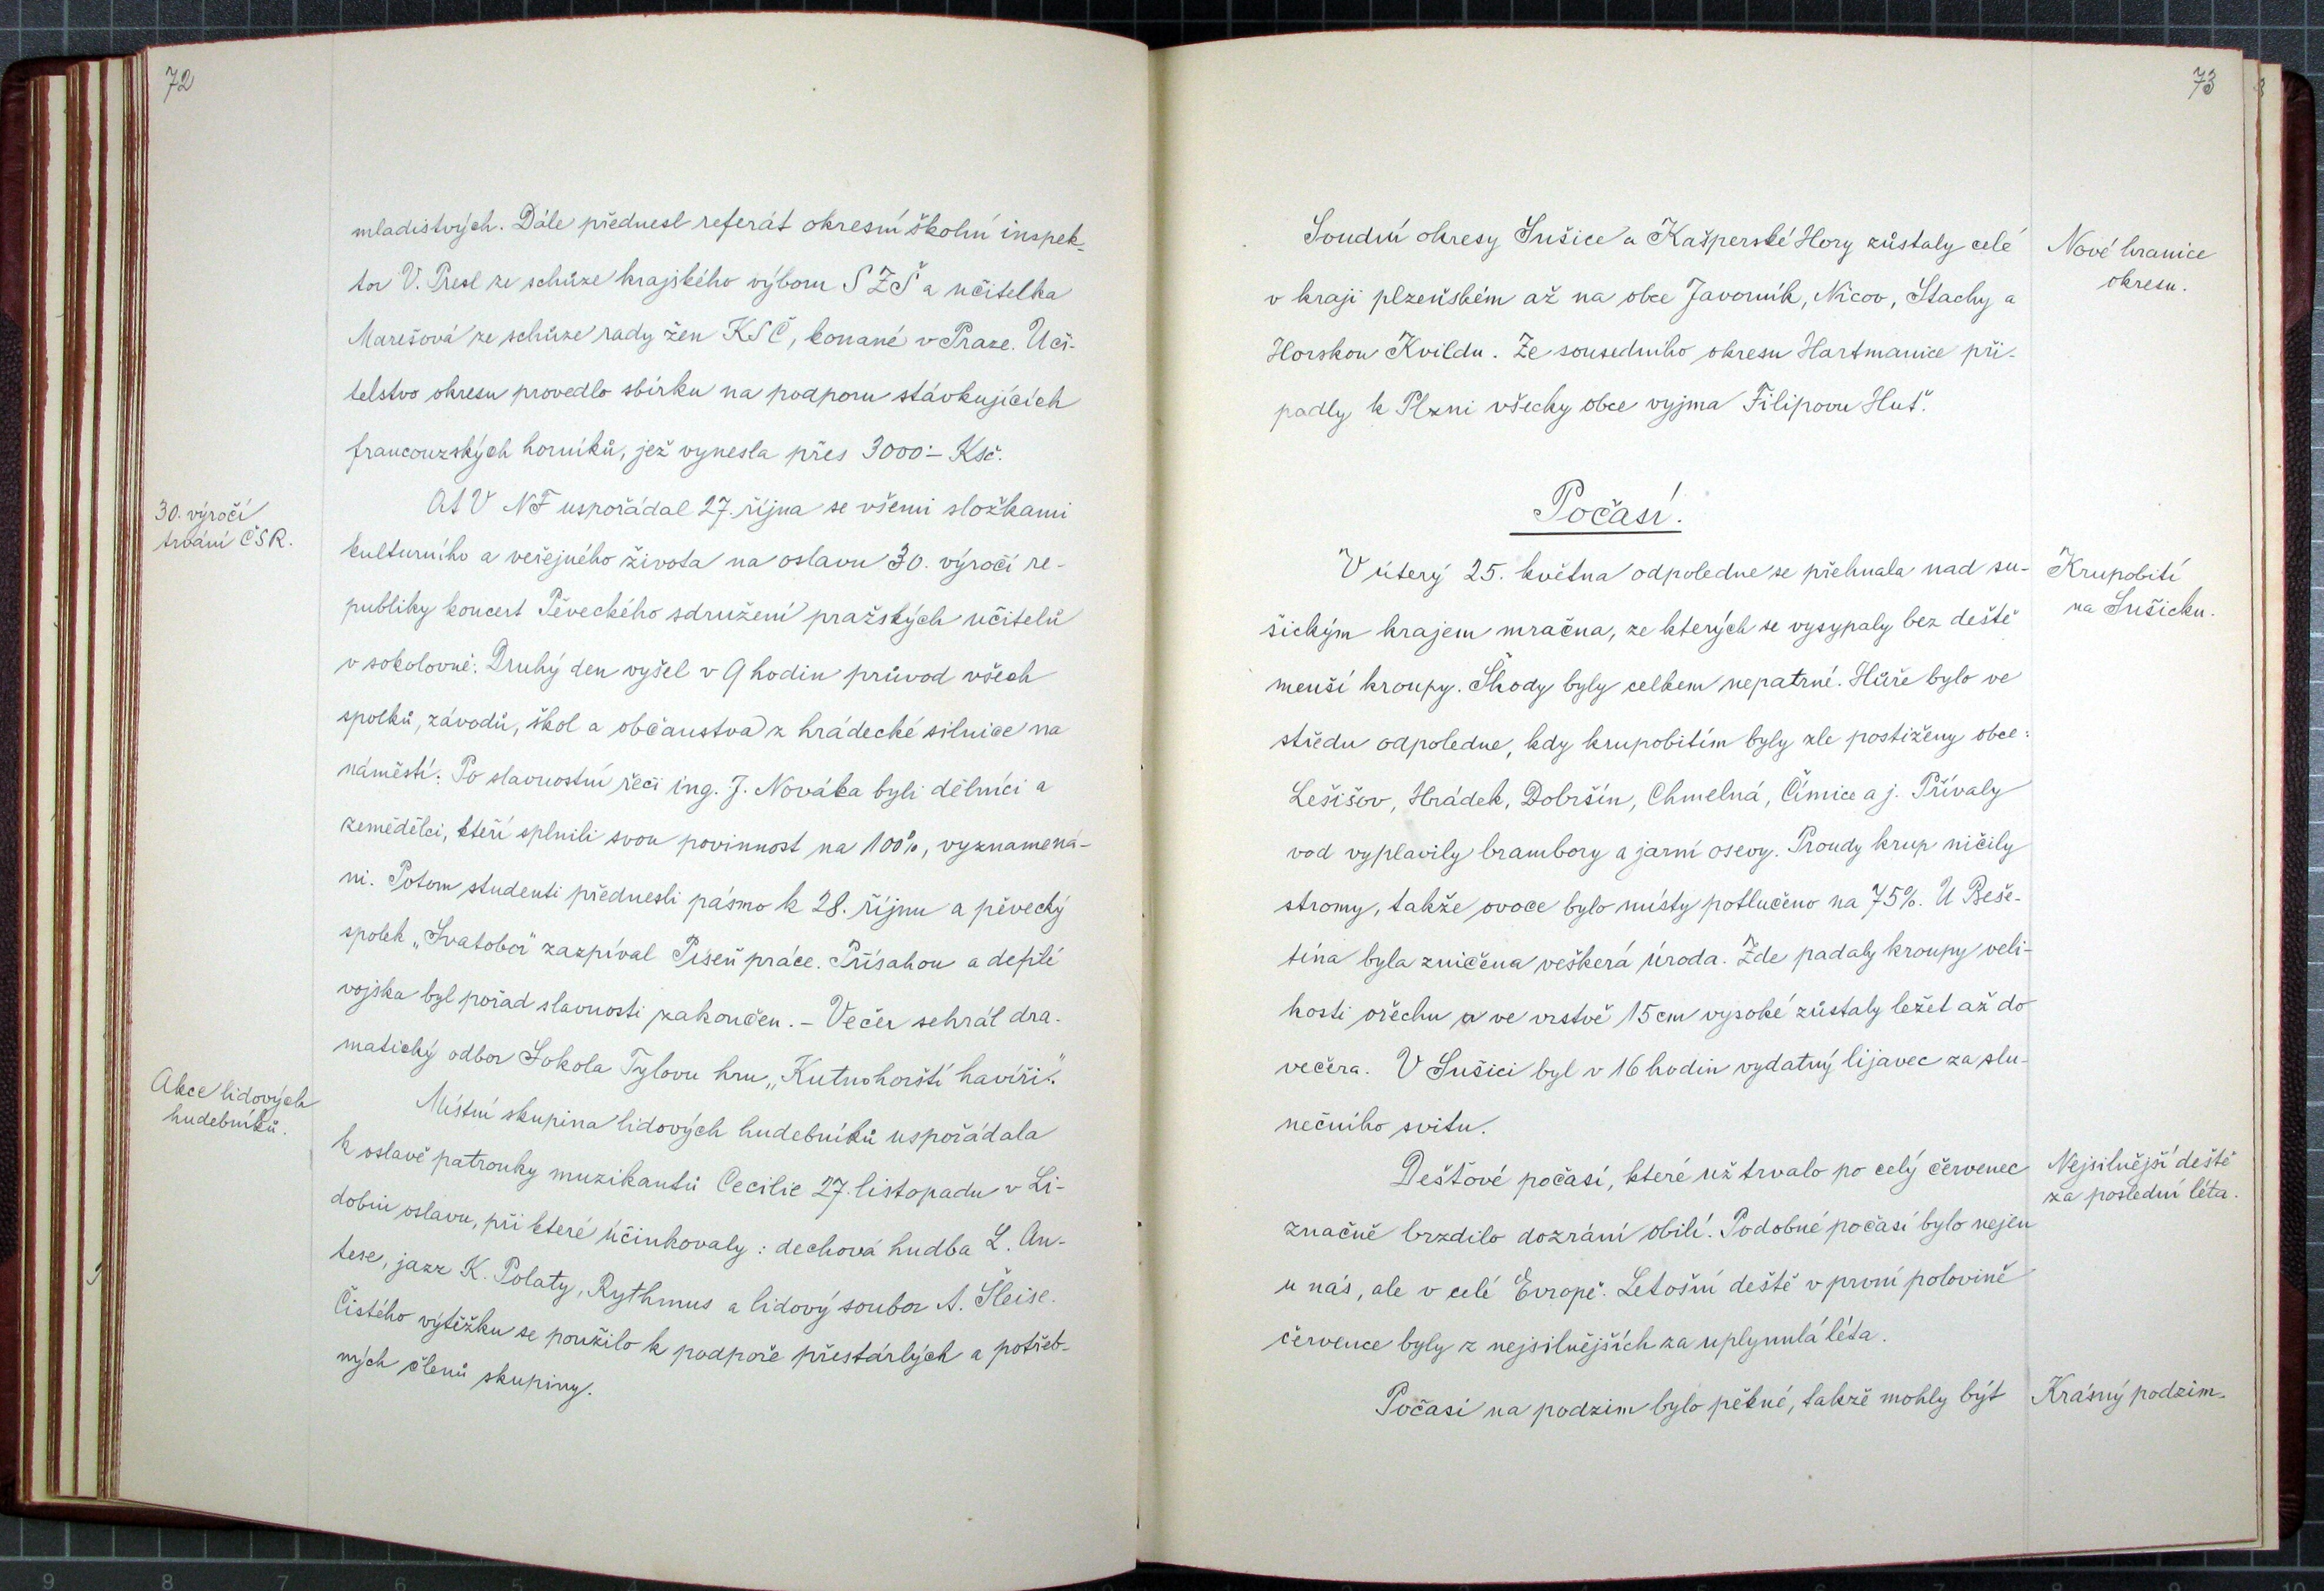 72
mladistvých. Dále přednesl referát okresní školní inspek-
tor V. Presl ze schůze krajského výboru SZŠ a učitelka
Marešová ze schůze rady žen KSČ, konané v Praze. Uči-
telstvo okresu provedlo sbírku na podporu stávkujících
francouzských horníků, jež vynesla přes 3000·– Kčs.
30. výročí
trvání ČSR.
AV NF uspořádal 27. října se všemi složkami
kulturního a veřejného života na oslavu 30. výročí re-
publiky koncert Pěveckého sdružení pražských učitelů
v sokolovně. Druhý den vyšel v 9 hodin průvod všech
spolků, závodů, škol a občanstva z hrádecké silnice na
náměstí. Po slavnostní řeči ing. J. Nováka byli dělníci a
zemědělci, kteří splnili svou povinnost na 100%, vyznamená-
ni. Potom studenti přednesli pásmo k 28. říjnu a pěvecký
spolek „Svatobor" zazpíval Píseň práce. Přísahou a defilé
vojska byl pořad slavnosti zakončen. – Večer sehrál dra-
matický odbor Sokola Tylovu hru „Kutnohorští havíři".
Akce lidových
hudebníků.
Místní skupina lidových hudebníků uspořádala
k oslavě patronky muzikantů Cecilie 27. listopadu v Li-
dobin oslavu, při které účinkovaly: dechová hudba L. An-
tese, jazz K. Polaty, Rythmus a lidový soubor A. Šleise.
Čistého výtěžku se použilo k podpoře přestárlých a potřeb-
ných členů skupiny.
73
Soudní okresy Sušice a Kašperské Hory zůstaly celé
v kraji plzeňském až na obce Javorník, Nicov, Stachy a
Horskou Kvildu. Ze sousedního okresu Hartmanice při-
padly k Plzni všecky obce vyjma Filipovu Huť.
Nové hranice
okresu.
Počasí.
V úterý 25. května odpoledne se přehnala nad su-
šickým krajem mračna, ze kterých se vysypaly bez deště
menší kroupy. Škody byly celkem nepatrné. Hůře bylo ve
středu odpoledne, kdy krupobitím byly zle postiženy obce:
Lešišov, Hrádek, Dobršín, Chmelná, Čímice a j. Přívaly
vod vyplavily brambory a jarní osevy. Proudy krup ničily
stromy, takže ovoce bylo místy potlučeno na 75%. U Beše-
tína byla zničena veškerá úroda. Zde padaly kroupy veli-
kosti ořechu a ve vrstvě 15 cm vysoké zůstaly ležet až do
večera. V Sušici byl v 16 hodin vydatný lijavec za slu-
nečního svitu.
Krupobití
na Sušicku.
Dešťové počasí, které už trvalo po celý červenec
značně brzdilo dozrání obilí. Podobné počasí bylo nejen
u nás, ale v celé Evropě. Letošní deště v první polovině
července byly z nejsilnějších za uplynulá léta.
Nejsilnější deště
za poslední léta.
Počasí na podzim bylo pěkné, takže mohly být
Krásný podzim.